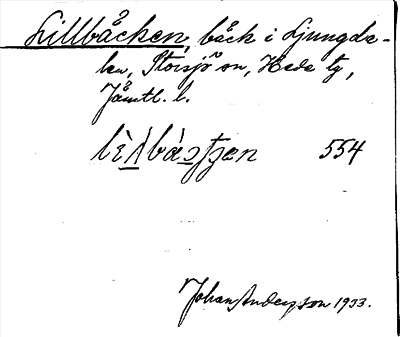 Lillbäcken, bäck i Ljungda-
len, Storsjö sn, Hede tg,
Jämtl. l.
554
Johan Anderson 1933.